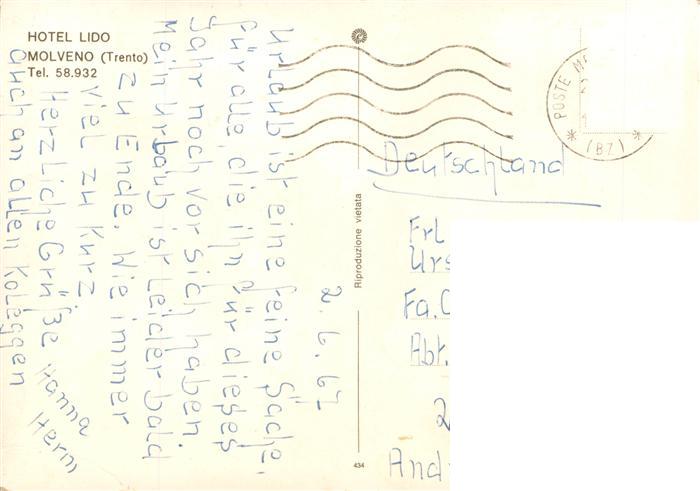 HOTEL LIDO
MOLVENO (Trento)
Tel. 58.932
2. 6. 67
Urlaub ist eine feine Sache,
für alle, die ihn für dieses
Jahr noch vor sich haben
Mein Urlaub ist leider bald
zu Ende. Wie immer
viel zu kurz
Herzliche Grüße
auch an allen Kolleggen
Hanna
Herm
Riproduzione vietata
434
POSTE
(BZ)
Deutschland
Frl
Urs
Fa.
Abt.
2
And